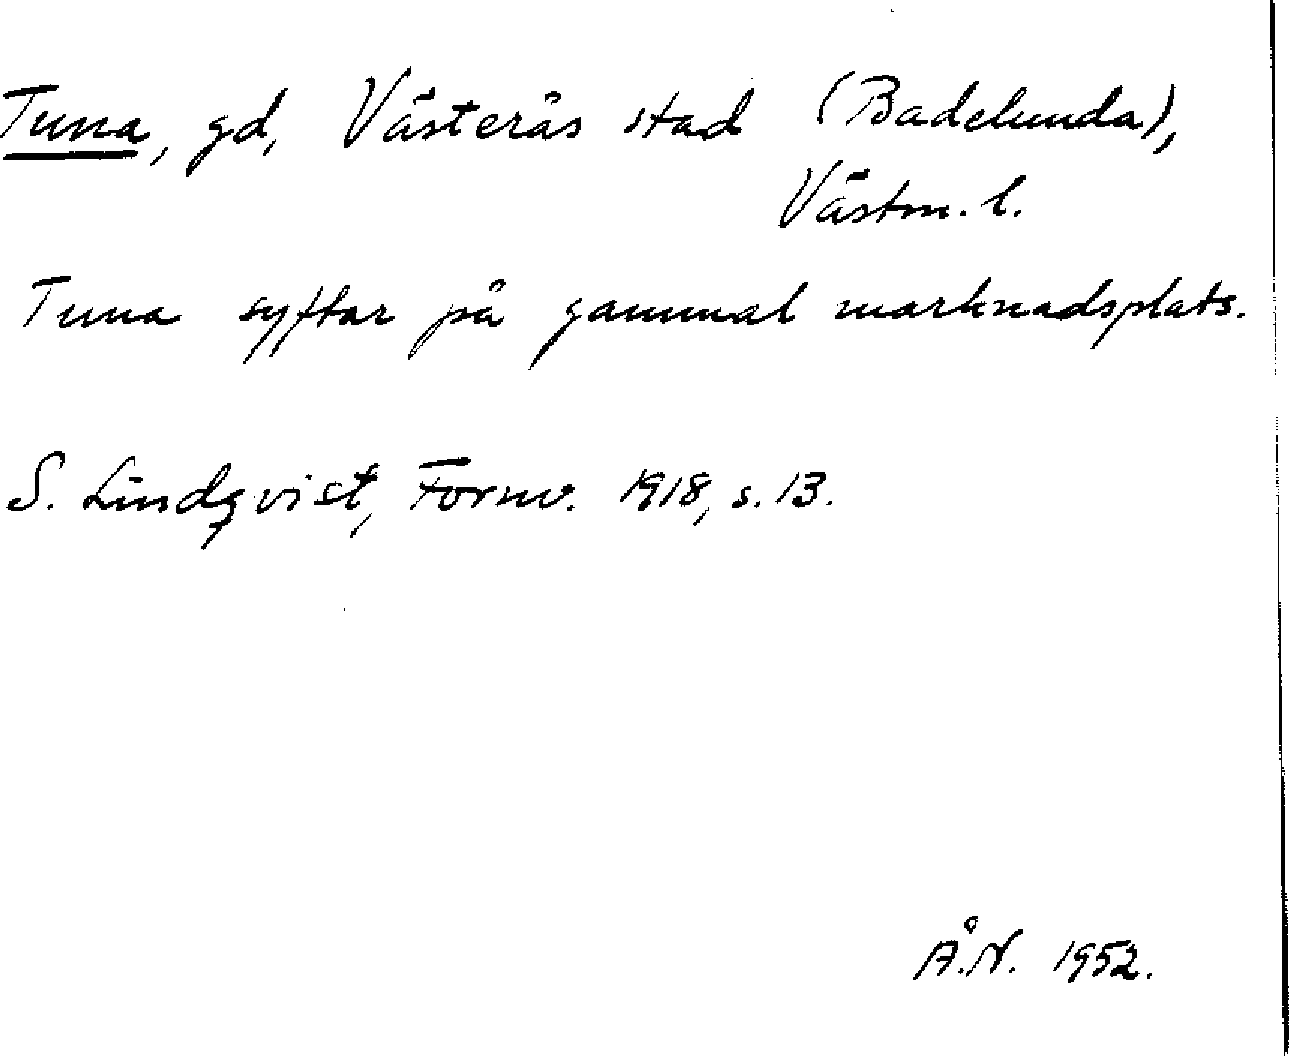 Tuna, gd, Västerås stad (Badelunda),
Västm. l.
Tuna syftar på gammal marknadsplats.
S. Lindqvist, Fornv. 1918, s. 13.
Å.N. 1952.